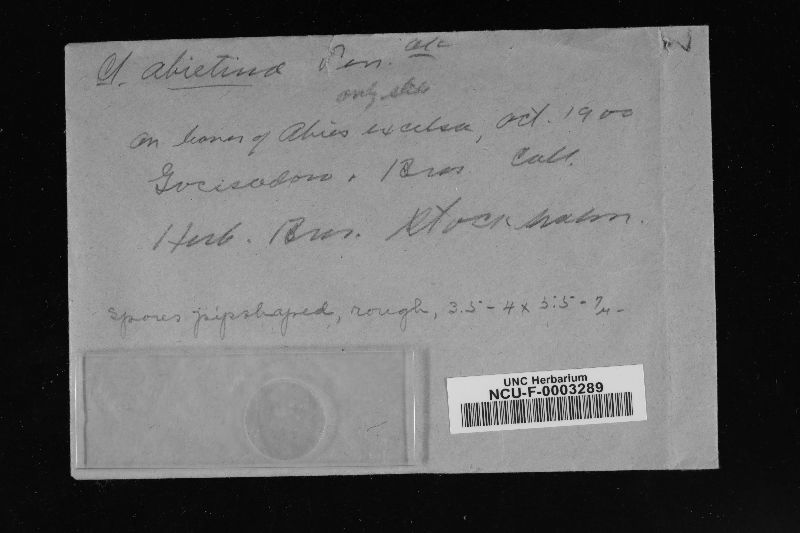 Cl. abietina Pers.
on leaves of Abies excelsa, Oct. 1900
Bres. Coll.
Herb. Bres. Stockholm.
spores pipshaped, rough, 3.5-4 x 5.5-7µ.
UNC Herbarium
NCU-F-0003289